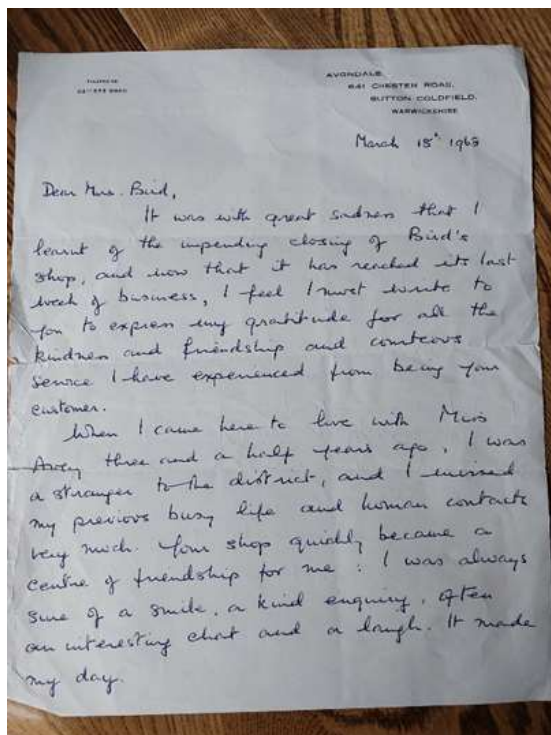 TELEPHONE
AVONDALE,
641 CHESTER ROAD,
SUTTON COLDFIELD,
WARWICKSHIRE
March 15th 1968
Dear Mrs. Bird,
It was with great sadness that I
learnt of the impending closing of Bird's
shop, and now that it has reached its last
week of business, I feel I must write to
you to express my gratitude for all the
kindness and friendship and courteous
service I have experienced from being your
customer.
When I came here to live with Miss
three and a half years ago, I was
a stranger to the district, and I missed
my previous busy life and human contacts
very much. Your shop quickly became a
centre of friendship for me : I was always
sure of a smile, a kind enquiry, often
an interesting chat and a laugh. It made
my day.